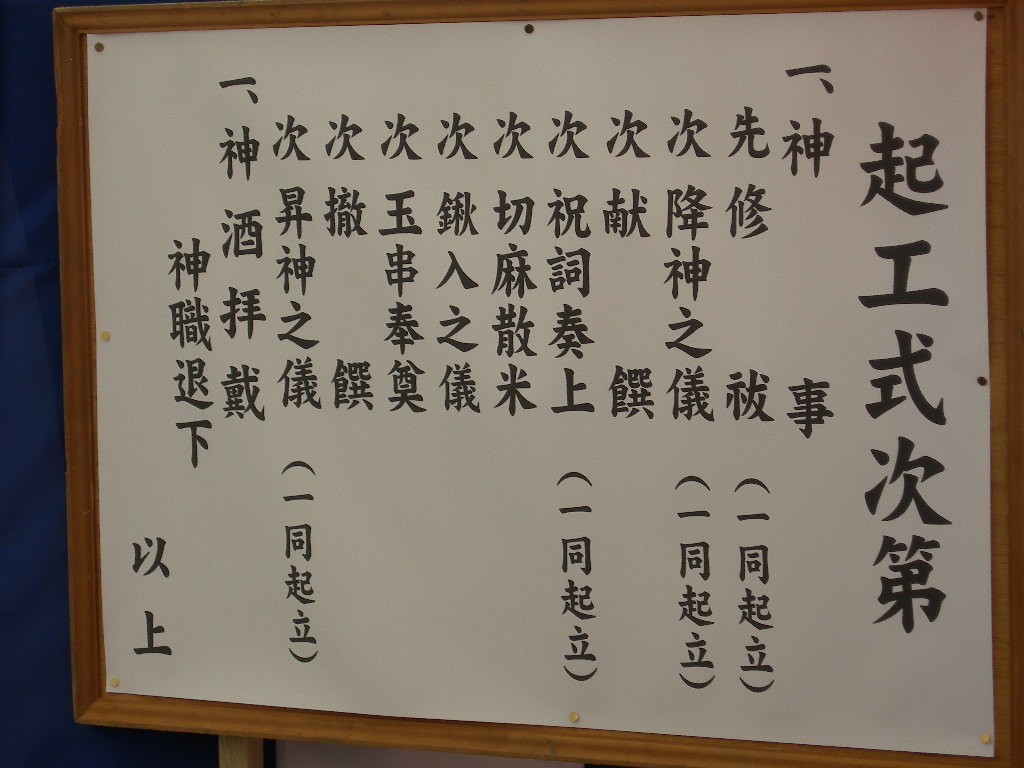 起工式次第
一、神事
先修祓（一同起立）
次降神之儀（一同起立）
次献饌
次祝詞奏上（一同起立）
次切麻散米
次鍬入之儀
次玉串奉奠
次撤饌
次昇神之儀（一同起立）
一、神酒拝戴
神職退下
以上